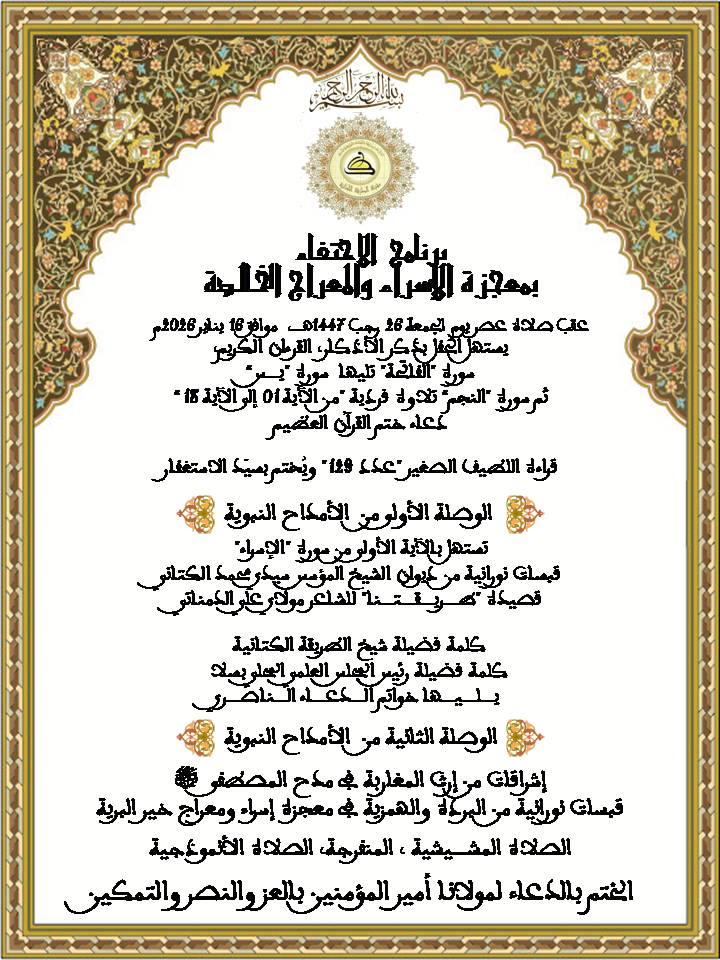 بسم الله الرحمن الرحيم
برنامج الاحتفاء
بمعجزة الإسراء والمعراج الخالدة
عقب صلاة عصر يوم الجمعة 26 رجب 1447هـ موافق 16 يناير 2026م
يستهل الحفل بذكر الأذكار، القرءان الكريم،
سورة "الفاتحة" تليها سورة "يــس"
ثم سورة "النجم" تلاوة فردية "من الآية 01 إلى الآية 18"
دعاء ختم القرآن العظيم
قراءة اللطيف الصغير "عدد 129" ويُختم بسيّد الاستغفار
الوصلة الأولى من الأمداح النبوية
تستهل بالآية الأولى من سورة "الإسراء"
قبسات نورانية من ديوان الشيخ المؤسس سيدي محمد الكتاني
قصيدة "طـــريـــقـــتـــنـــا" للشاعر مولاي علي الدمناتي
كلمة فضيلة شيخ الطريقة الكتانية
كلمة فضيلة رئيس المجلس العلمي المحلي بسلا
يـــلـــيـــهـــا خواتم الـــدعـــاء الـــنـــاصـــري
الوصلة الثانية من الأمداح النبوية
إشراقات من إرث المغاربة في مدح المصطفى ﷺ
قبسات نورانية من البردة والهمزية في معجزة إسراء ومعراج خير البرية
الصلاة المشـيشية ، المنفرجة، الصلاة الأنموذجية
الختم بالدعاء لمولانا أمير المؤمنين بالعز والنصر والتمكين